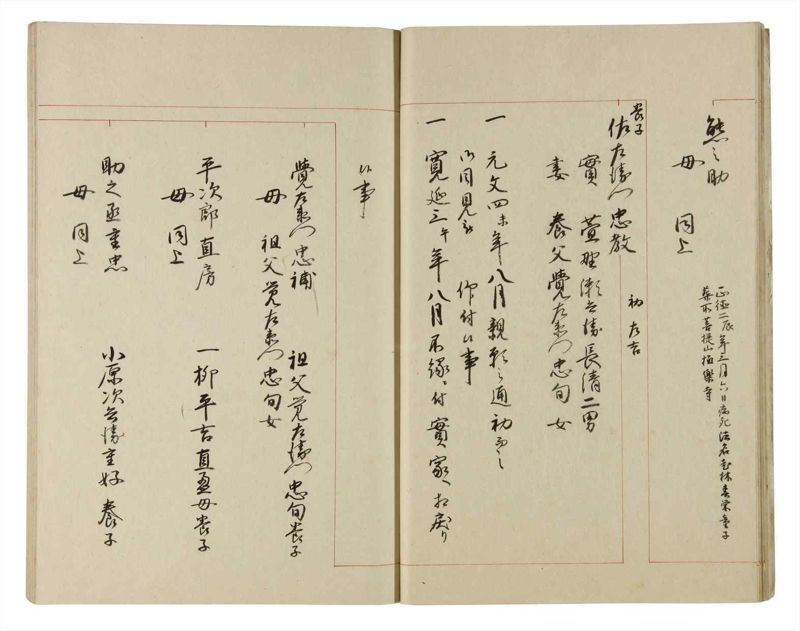 熊之助
母 同上
正徳二辰年三月六日病死法名玉林春栄童子
葬所菩提山極樂寺
養子
佐左衛門忠教 初 左吉
實 萱野瀬兵衛長清二男
妻 養父覺左衛門忠旬女
一 元文四未年八月親類之通初而之
御目見被 仰付候事
一 寛延三午年八月不縁ニ付實家ヘ相戻り
候事
覺左衛門忠補 祖父覚左衛門忠旬養子
母 祖父覚左衛門忠旬女
平次郎直房 一柳平吉直盈母養子
母 同上
助之丞重忠 小原次兵衛重好養子
母 同上